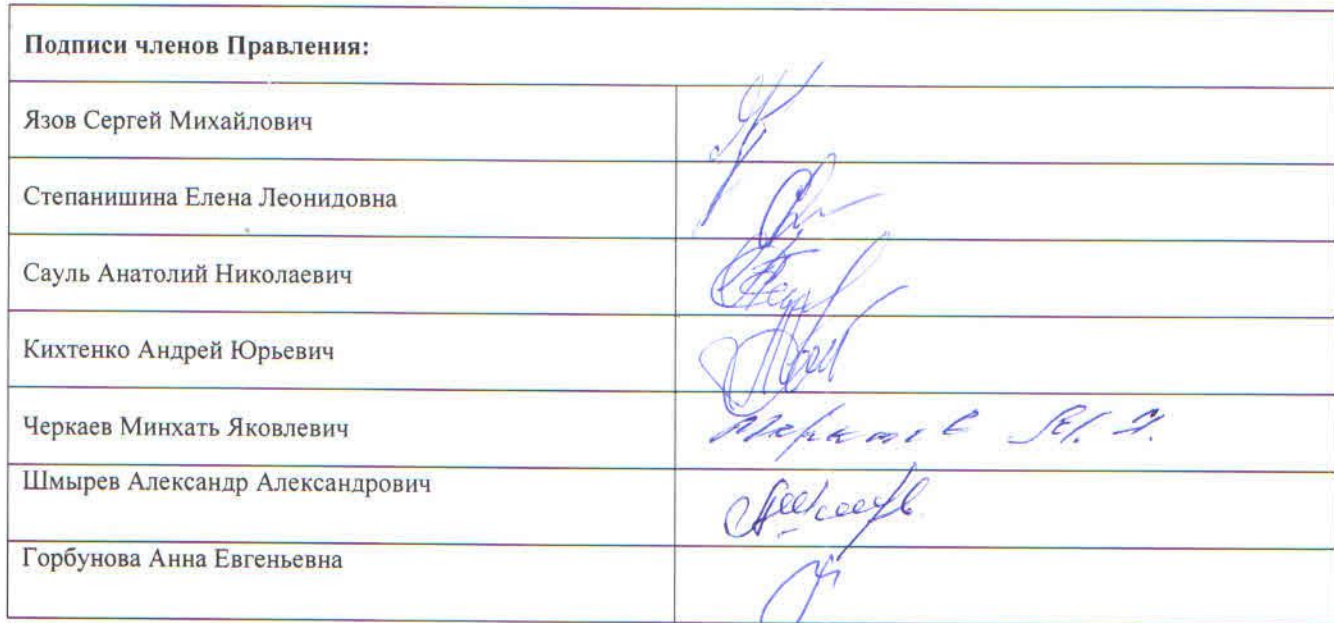 Подписи членов Правления:
Язов Сергей Михайлович
Степанишина Елена Леонидовна
Сауль Анатолий Николаевич
Кихтенко Андрей Юрьевич
Черкаев Минхать Яковлевич
Шмырев Александр Александрович
Горбунова Анна Евгеньевна